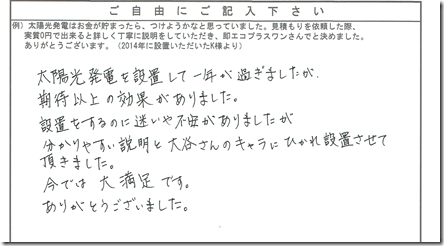 ご自由にご記入下さい
例）太陽光発電はお金が貯まったら、つけようかなと思っていました。見積もりを依頼した際、
実質0円で出来ると詳しく丁寧に説明をしていただき、即エコプラスワンさんでと決めました。
ありがとうございます。（2014年に設置いただいたK様より）
太陽光発電を設置して一年が過ぎましたが、
期待以上の効果がありました。
設置をするのに迷いや不安がありましたが
分かりやすい説明と大谷さんのキャラにひかれ設置させて
頂きました。
今では大満足です。
ありがとうございました。